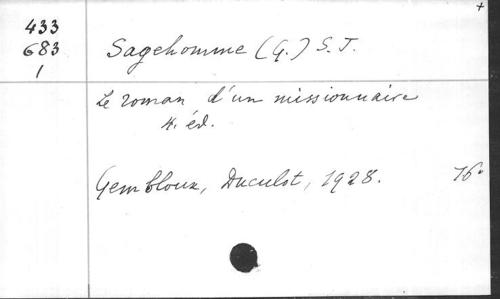 +
433
683
1
Sagehomme (G.) S. J.
Le roman d'un missionnaire
4. éd.
Gembloux, Duculot, 1928.
16°